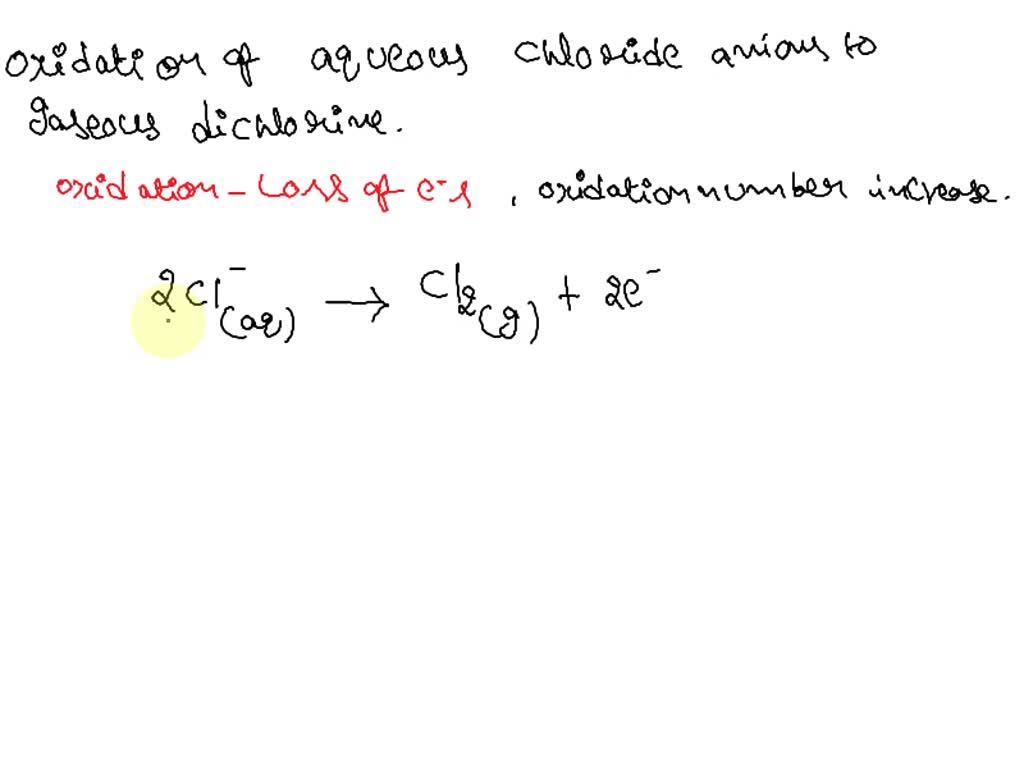 oxidation of aqueous chloride anions to
gaseous dichlorine.
oxidation - Loss of e⁻s , oxidation number increase.
2Cl⁻(aq) → Cl₂(g) + 2e⁻